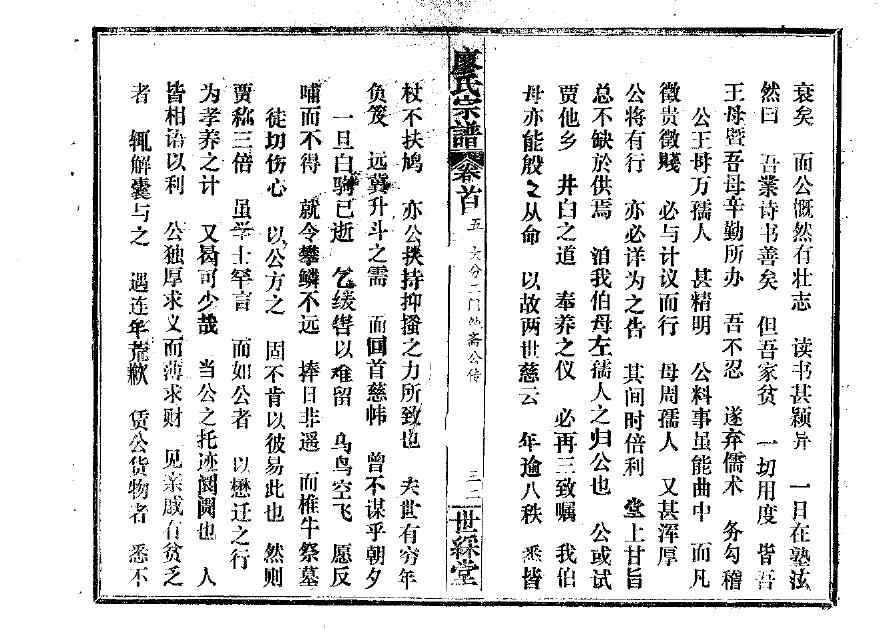 衰矣 而公慨然有壮志 读书甚颖异 一日在塾法
然曰 吾業诗书善矣 但吾家贫 一切用度 皆吾
王母暨吾母辛勤所办 吾不忍 遂弃儒术 务勾稽
公王母万孺人 甚精明 公料事虽能曲中 而凡
徵贵徵贱 必与计议而行 母周孺人 又甚浑厚
公将有行 亦必详为之告 其间时倍利 堂上甘旨
总不缺於供焉 洎我伯母左孺人之归公也 公或试
贾他乡 井臼之道 奉养之仪 必再三致嘱 我伯
母亦能殷之从命 以故两世慈云 年逾八秩 悉皆
廖氏宗譜 卷首 五 大分二门 斋公传 三二 世綵堂
杖不扶鸠 亦公挟持抑搔之力所致也 夫世有穷年
负笈 远冀升斗之需 而回首慈帏 曾不谋乎朝夕
一旦白驹已逝 乞缓辔以难留 乌鸟空飞 愿反
哺而不得 就令攀鳞不远 捧日非遥 而椎牛祭墓
徒切伤心 以公方之 固不肯以彼易此也 然则
贾称三倍 虽学士罕言 而如公者 以懋迁之行
为孝养之计 又曷可少哉 当公之托迹阛阓也 人
皆相语以利 公独厚求义而薄求财 见亲戚有贫乏
者 辄解囊与之 遇连年荒歉 赁公货物者 悉不